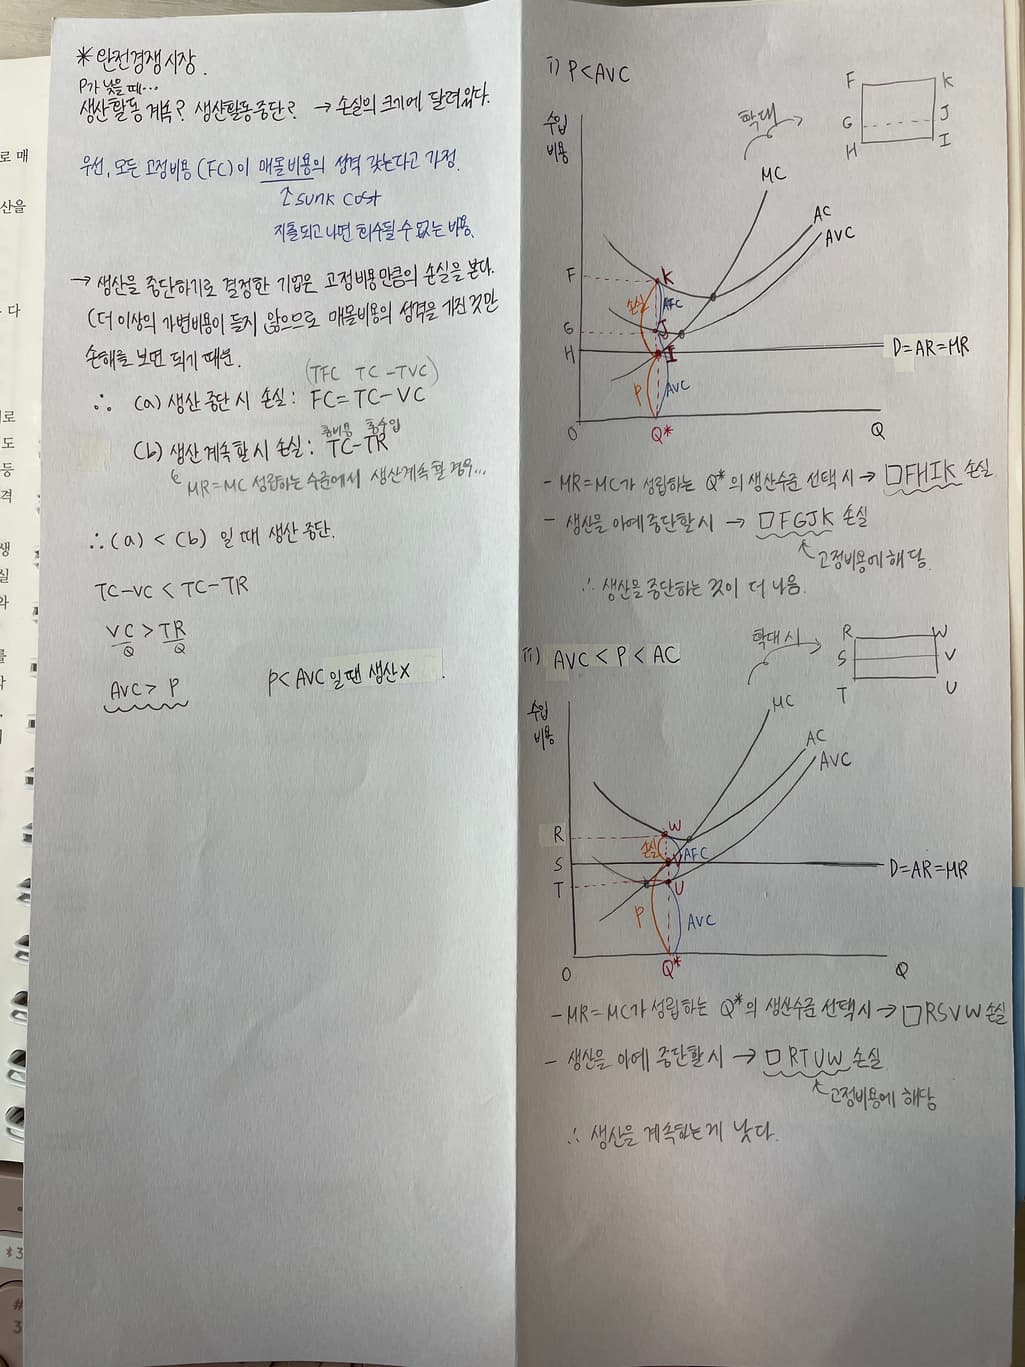 *완전경쟁시장.
P가 낮을 때…
생산활동 계속? 생산활동중단? → 손실의 크기에 달려있다.
우선, 모든 고정비용(FC)이 매몰비용의 성격 갖는다고 가정.
↑sunk cost
지불되고나면 회수될 수 없는 비용.
→ 생산을 중단하기로 결정한 기업은 고정비용만큼의 손실을 본다.
(더 이상의 가변비용이 들지 않으므로 매몰비용의 성격을 가진것만
손해를 보면 되기 때문.
(TFC TC-TVC)
∴ (a) 생산 중단 시 손실: FC=TC-VC
총비용 총수입
(b) 생산 계속할 시 손실: TC-TR
MR=MC 성립하는 수준에서 생산계속 할 경우…
∴(a) < (b) 일 때 생산 중단.
TC-VC < TC-TR
VC/Q > TR/Q
AVC > P
P<AVC 일 땐 생산X.
i) P<AVC
확대
F K
G J
H I
수입
비용
MC
AC
AVC
F K
손실 AFC
G J
H I
D=AR=MR
P AVC
O Q* Q
- MR=MC가 성립하는 Q*의 생산수준 선택시 → □FHIK 손실
- 생산을 아예중단할시 → □FGJK 손실
고정비용에 해당.
∴ 생산을 중단하는 것이 더 나음.
ii) AVC < P < AC
확대시
R W
S V
T U
수입
비용
MC
AC
AVC
R W
손실 AFC
S V
D=AR=MR
T U
P AVC
O Q* Q
- MR=MC가 성립하는 Q*의 생산수준 선택시 → □RSVW 손실
- 생산을 아예 중단할시 → □RTUW 손실
고정비용에 해당
∴ 생산을 계속하는게 낫다.